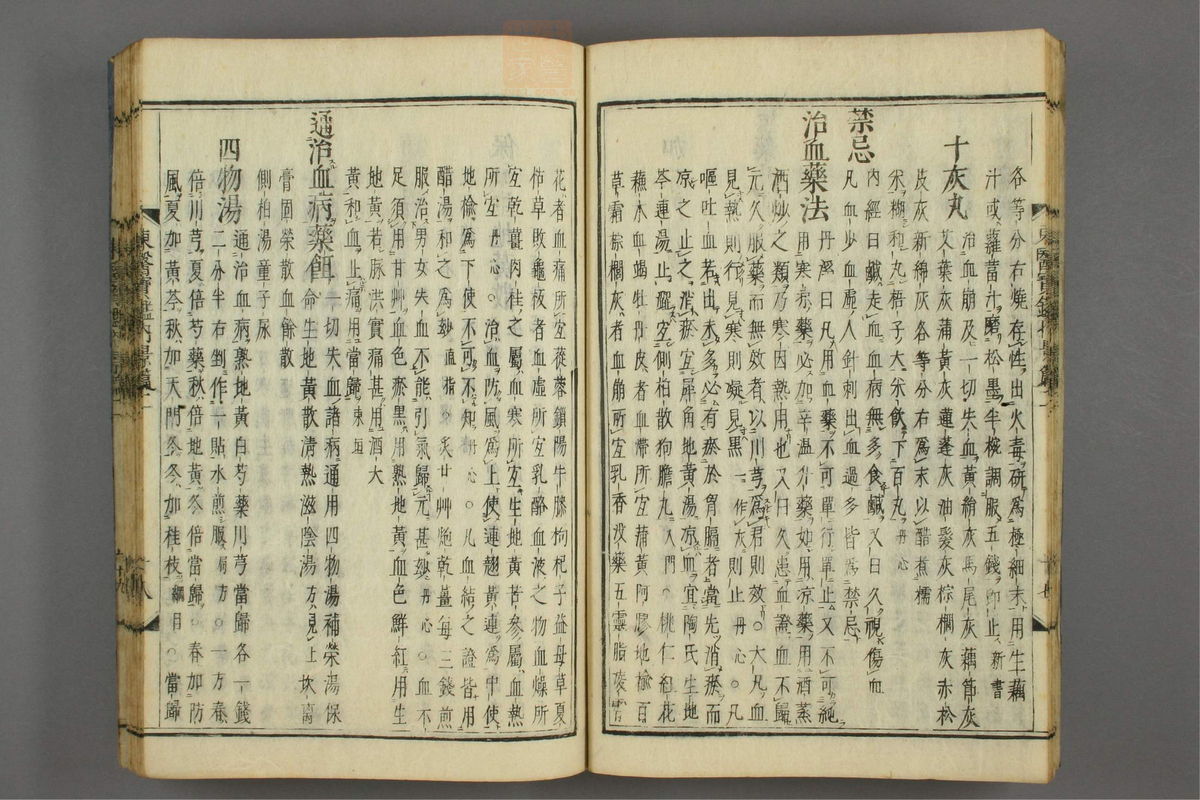 各等分右燒存性出火毒研爲極細末用生藕
汁或蘿葍汁磨松墨半椀調服五錢即止新書
十灰丸 治血崩及一切失血黃絹灰馬尾灰藕節灰
艾葉灰蒲黃灰蓮蓬灰油髮灰棕櫚灰赤松
皮灰新綿灰各等分右爲末以醋煮糯
米糊和丸梧子大米飮下百丸丹心
禁忌
內經曰鹹走血血病無多食鹹又曰久視傷血
凡血少血虛人針刺出血過多皆爲禁忌
治血藥法 丹溪曰凡用血藥不可單行單止又不可純
用寒凉藥必加辛溫升藥如用凉藥用酒蒸
酒炒之類乃寒因熱用也又曰久患血證血不歸
元久服藥而無效者以川芎爲君則效○大凡血
見熱則行見寒則凝見黑一作灰則止丹心○凡
嘔吐血若出未多必有瘀於胃膈者當先消瘀而
凉之止之消瘀宜犀角地黃湯凉血宜陶氏生地
芩連湯止齕宜側柏散狗膽丸入門○桃仁紅花
蘇木血竭牡丹皮者血滯所宜蒲黃阿膠地楡百
草霜棕櫚灰者血崩所宜乳香沒藥五靈脂凌霄
花者血痛所宜蓯蓉鎖陽牛膝枸杞子益母草夏
枯草敗龜板者血虛所宜乳酪血液之物血燥所
宜乾薑肉桂之屬血寒所宜生地黃苦參屬血熱
所宜丹心○治血防風爲上使連翹黃連爲中使
地楡爲下使不可不知丹心○凡血結之證皆用
醋湯和之爲妙直指○炙甘艸炮乾薑每三錢煎
服治男女失血不能引氣歸元甚妙丹心○血不
足須用甘艸血色瘀黑用熟地黃血色鮮紅用生
地黃若脉洪實痛甚用酒大
黃和血止痛用當歸東垣
通治血病藥餌 一切失血諸病通用四物湯補榮湯保
命生地黃散淸熱滋陰湯方見上坎离
膏固榮散血餘散
側柏湯童子尿
四物湯 通治血病熟地黃白芍藥川芎當歸各一錢
二分半右剉作一貼水煎服局方○一方春
倍川芎夏倍芍藥秋倍地黃冬倍當歸○春加防
風夏加黃芩秋加天門冬冬加桂枝綱目○當歸